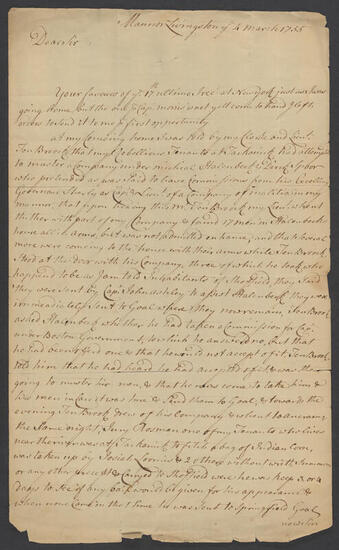 Mannor Livingston ye 4 March 1755
Dear Sir
Your favour of ye 17th ultimo I rec'd at New York just as I was
going home, but the one Cap. has not yet come to hand I left
orders to send it to me p first opportunity
at my coming home I was told by my Clerk and Lieut
Ten Broeck that my Rebellious Tenants at Tachanick had attempted
to muster a Company under Michael Halenbeck & Dirck Spoor
who pretended as was said to have Commissions from his Excellency
Governour Shirly as Capt & Lieut of a Company of militia in my
mannor, that upon hearing this Mr Ten Broeck my Lieut went
thither with part of my Company & found 17 men in Halenbeck
house all in arms, but was not admitted
more were coming to the house with their arms while Ten Broeck
stood at the door with his Company, three of which he took who
happened to be as I am told Inhabitants of Sheffield they said
they were sent by Capt John Ashley to assist Halenbeck they were
immediately sent to Goal where they now remain, Ten Broeck
asked Halenbeck whither he had taken a Commission for Capt
under Boston Government, to which he answered no, but that
he had been offered one & that he would not accept of it Ten Broeck
told him that he had heard he had accepted of it & was then
going to muster his men, & that he was come to take him &
his men in case it was true & send them to Goal, & towards the
evening Ten Broeck drew of his Company & went to
the same night, Jury Rosman one of my Tenants who lives
near the at Tachanick to fetch a bag of Indian Corn,
was taken up by Josiah Loomis & 2 others without with Summons
or any other precept & carryed to Sheffield were he was keep 3 or 4
days to see if any bail would be given for his appearance &
when none came in that time he was sent to Springfield Goal